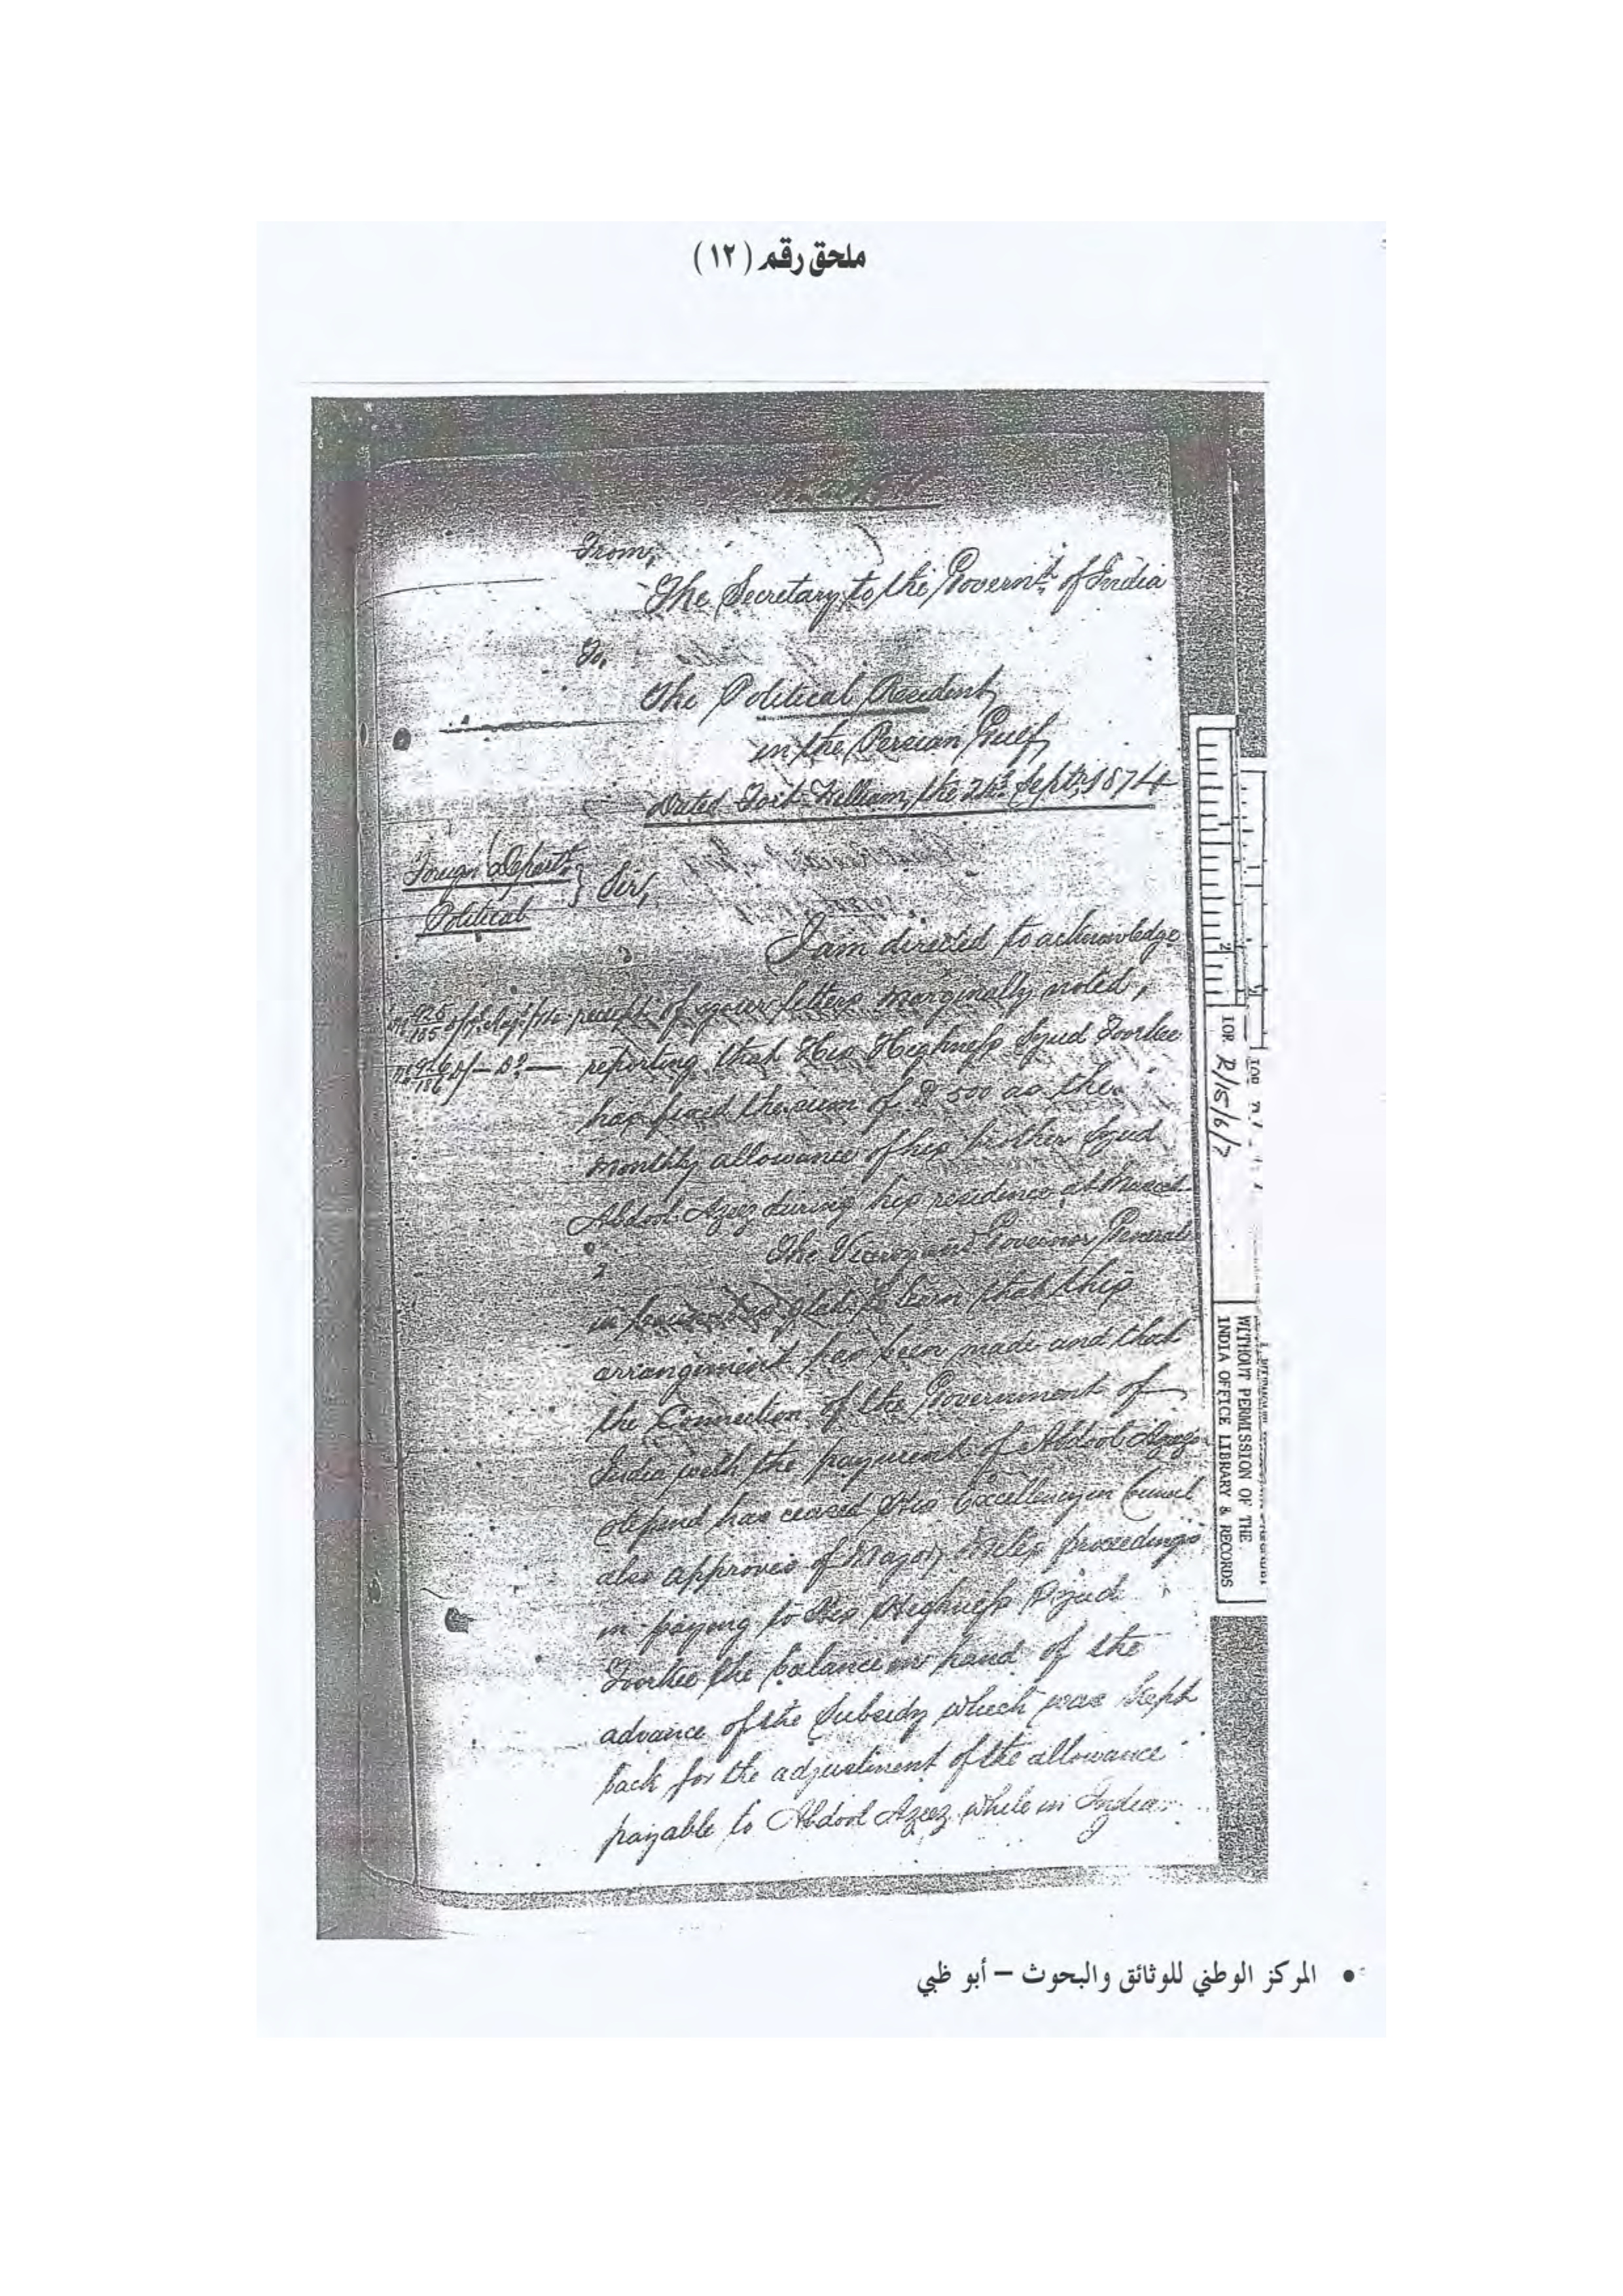 ملحق رقم (١٢)
From,
The Secretary to the Governt. of India
To,
The Political Resident
in the Persian Gulf,
Dated Fort William, the Septr. 1874
Foreign Departt.
Political
Sir,
I am directed to acknowledge
receipt of your letters marginally noted,
No 925/185
No 926/186
reporting that His Highness Syud Toorkee
has fixed the sum of 500 as the
monthly allowance of his brother Syud
Abdool Azeez during his residence at Muscat
2
The Viceroy and Governor General
in glad to learn that this
arrangement has been made and that
the Connection of the Government of
India with the payment of Abdool Azeez
stipend has ceased His Excellency in Council
also approves of Major Miles proceedings
in paying to His Highness Syud
Toorkee the balance in hand of the
advance of the Subsidy which was kept
back for the adjustment of the allowance
payable to Abdool Azeez while in India.
2
IOR R/15/6/7
WITHOUT PERMISSION OF THE
INDIA OFFICE LIBRARY & RECORDS
• المركز الوطني للوثائق والبحوث – أبو ظبي